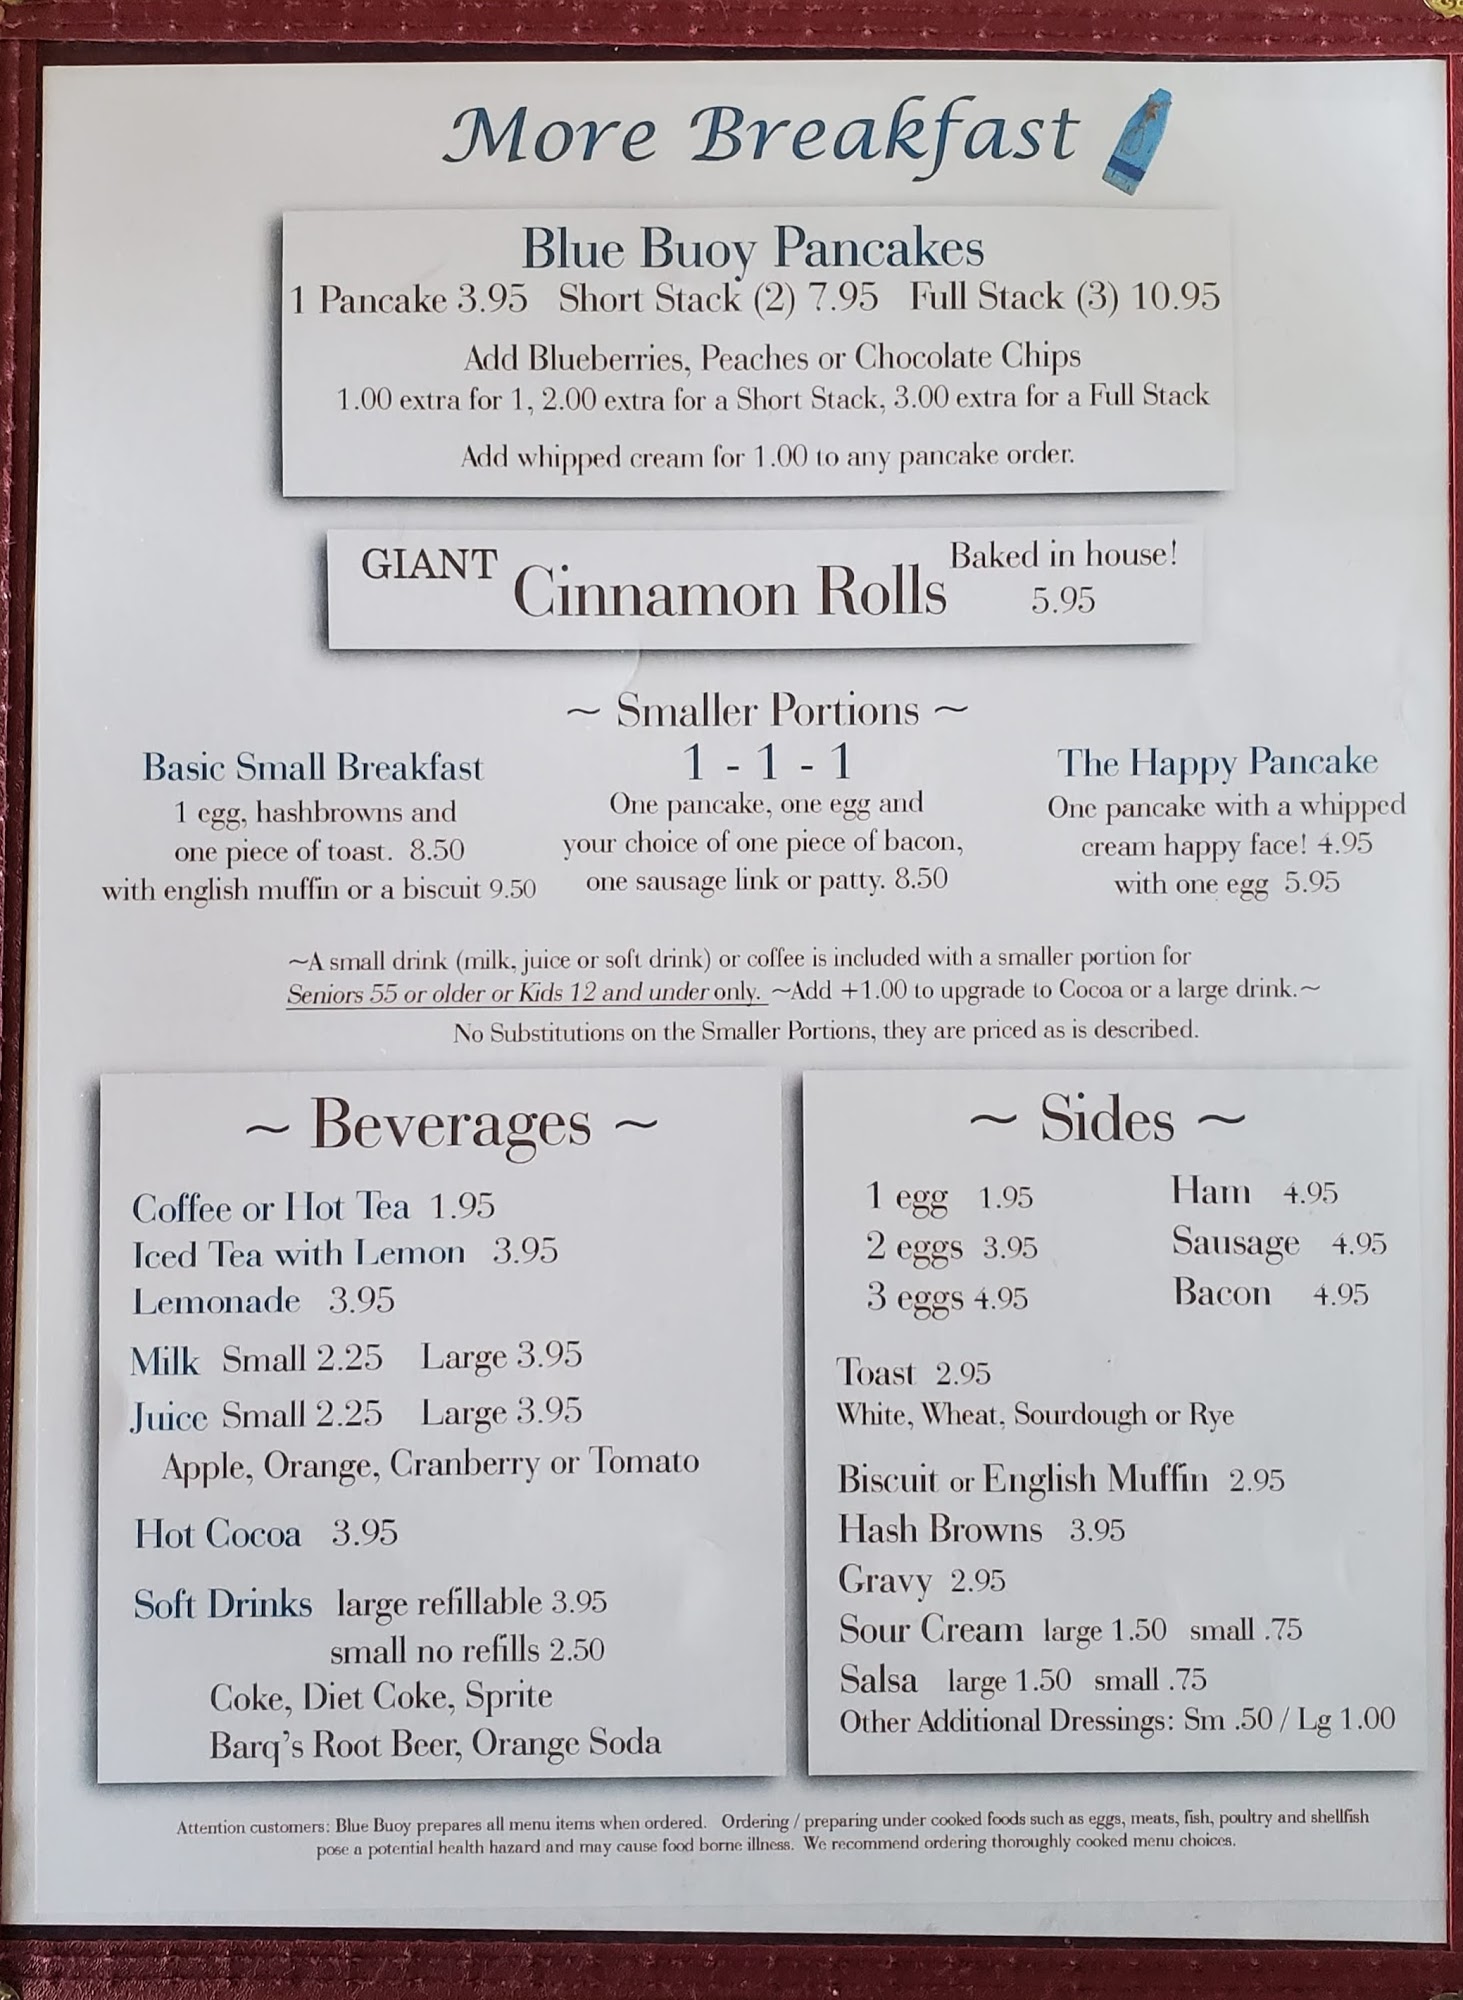 More Breakfast
Blue Buoy Pancakes
1 Pancake 3.95 Short Stack (2) 7.95 Full Stack (3) 10.95
Add Blueberries, Peaches or Chocolate Chips
1.00 extra for 1, 2.00 extra for a Short Stack, 3.00 extra for a Full Stack
Add whipped cream for 1.00 to any pancake order.
GIANT Cinnamon Rolls
Baked in house!
5.95
~ Smaller Portions ~
Basic Small Breakfast
1 egg, hashbrowns and
one piece of toast. 8.50
with english muffin or a biscuit 9.50
1 - 1 - 1
One pancake, one egg and
your choice of one piece of bacon,
one sausage link or patty. 8.50
The Happy Pancake
One pancake with a whipped
cream happy face! 4.95
with one egg 5.95
~A small drink (milk, juice or soft drink) or coffee is included with a smaller portion for
Seniors 55 or older or Kids 12 and under only. ~Add +1.00 to upgrade to Cocoa or a large drink.~
No Substitutions on the Smaller Portions, they are priced as is described.
~ Beverages ~
Coffee or Hot Tea 1.95
Iced Tea with Lemon 3.95
Lemonade 3.95
Milk Small 2.25 Large 3.95
Juice Small 2.25 Large 3.95
Apple, Orange, Cranberry or Tomato
Hot Cocoa 3.95
Soft Drinks large refillable 3.95
small no refills 2.50
Coke, Diet Coke, Sprite
Barq's Root Beer, Orange Soda
~ Sides ~
1 egg 1.95 Ham 4.95
2 eggs 3.95 Sausage 4.95
3 eggs 4.95 Bacon 4.95
Toast 2.95
White, Wheat, Sourdough or Rye
Biscuit or English Muffin 2.95
Hash Browns 3.95
Gravy 2.95
Sour Cream large 1.50 small .75
Salsa large 1.50 small .75
Other Additional Dressings: Sm .50 / Lg 1.00
Attention customers: Blue Buoy prepares all menu items when ordered. Ordering / preparing under cooked foods such as eggs, meats, fish, poultry and shellfish
pose a potential health hazard and may cause food borne illness. We recommend ordering thoroughly cooked menu choices.